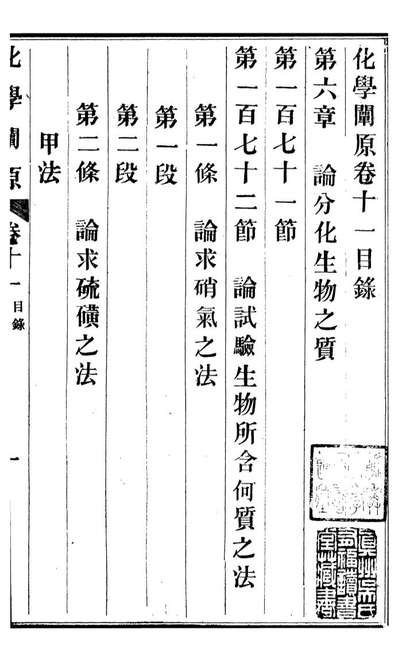 化學闡原卷十一目錄
第六章 論分化生物之質
第一百七十一節
第一百七十二節 論試驗生物所含何質之法
第一條 論求硝氣之法
第一段
第二段
第二條 論求硫磺之法
甲法
化學闡原 卷十一 目錄 一